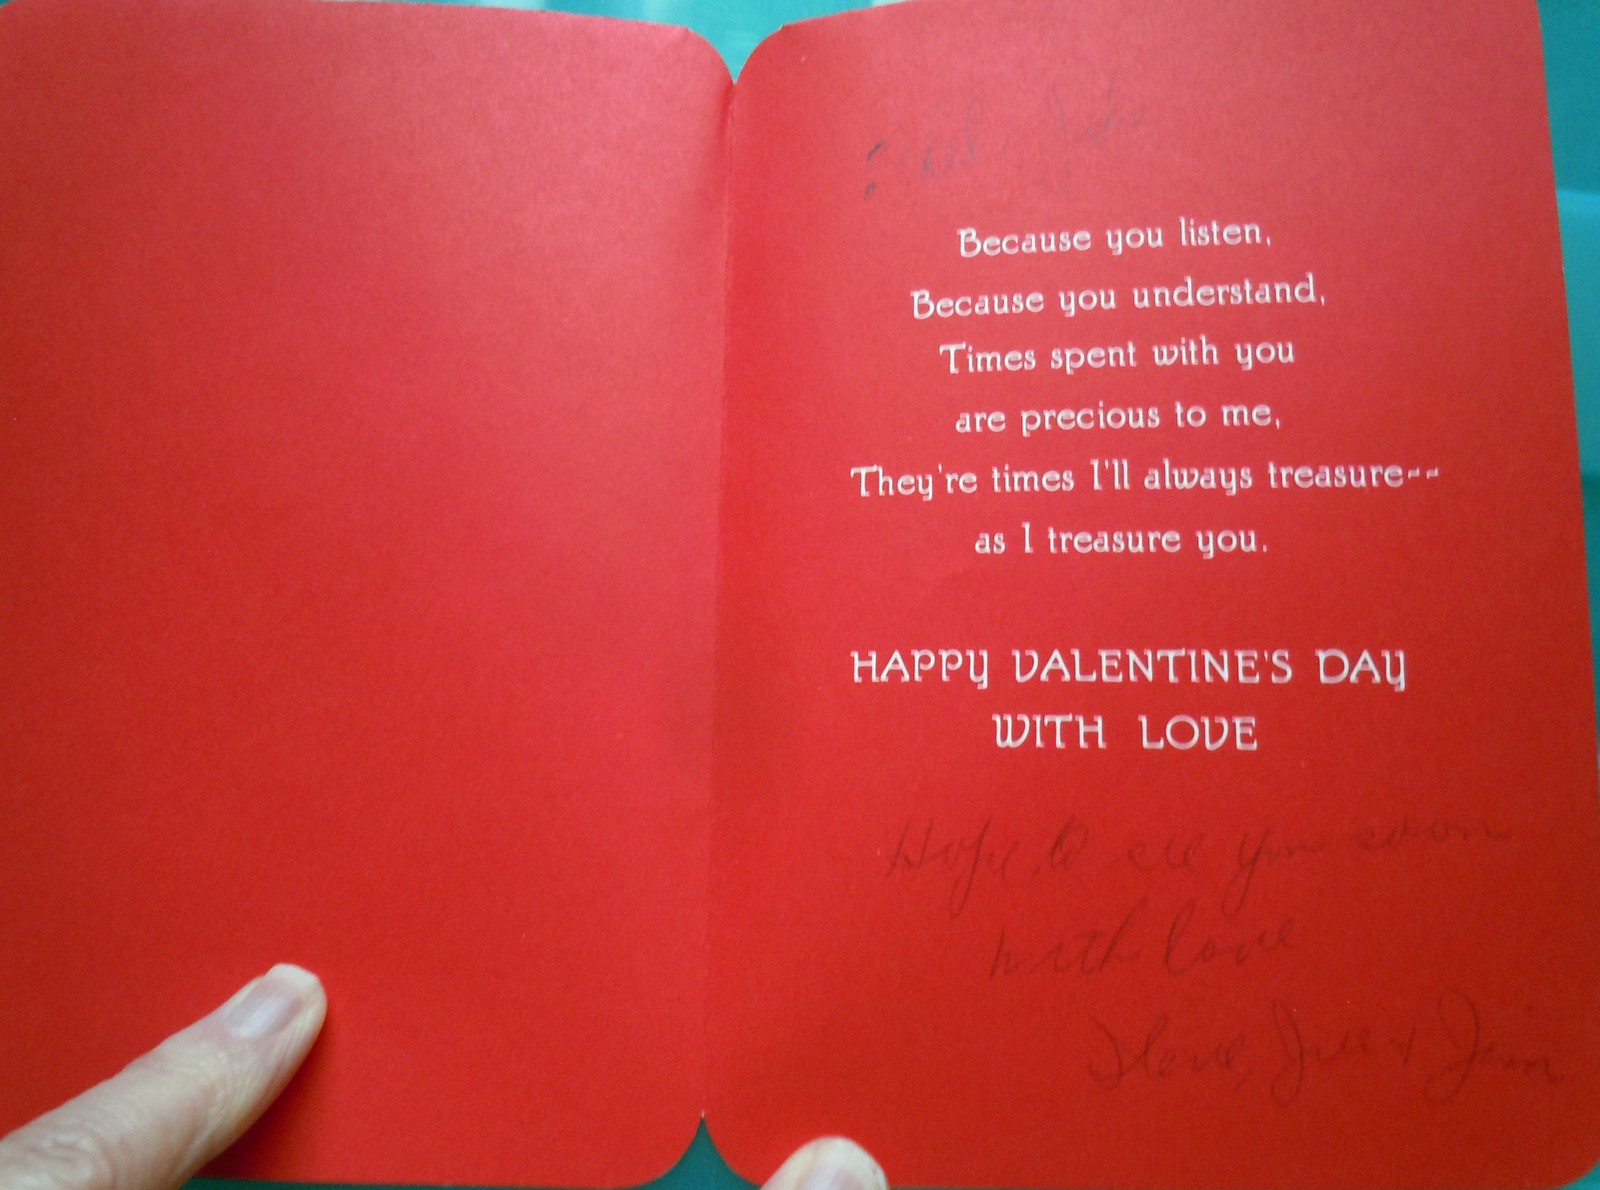 Because you listen,
Because you understand,
Times spent with you
are precious to me,
They're times I'll always treasure--
as I treasure you.
HAPPY VALENTINE'S DAY
WITH LOVE
Hope to see you soon
with love
Steve, Jill + Jim